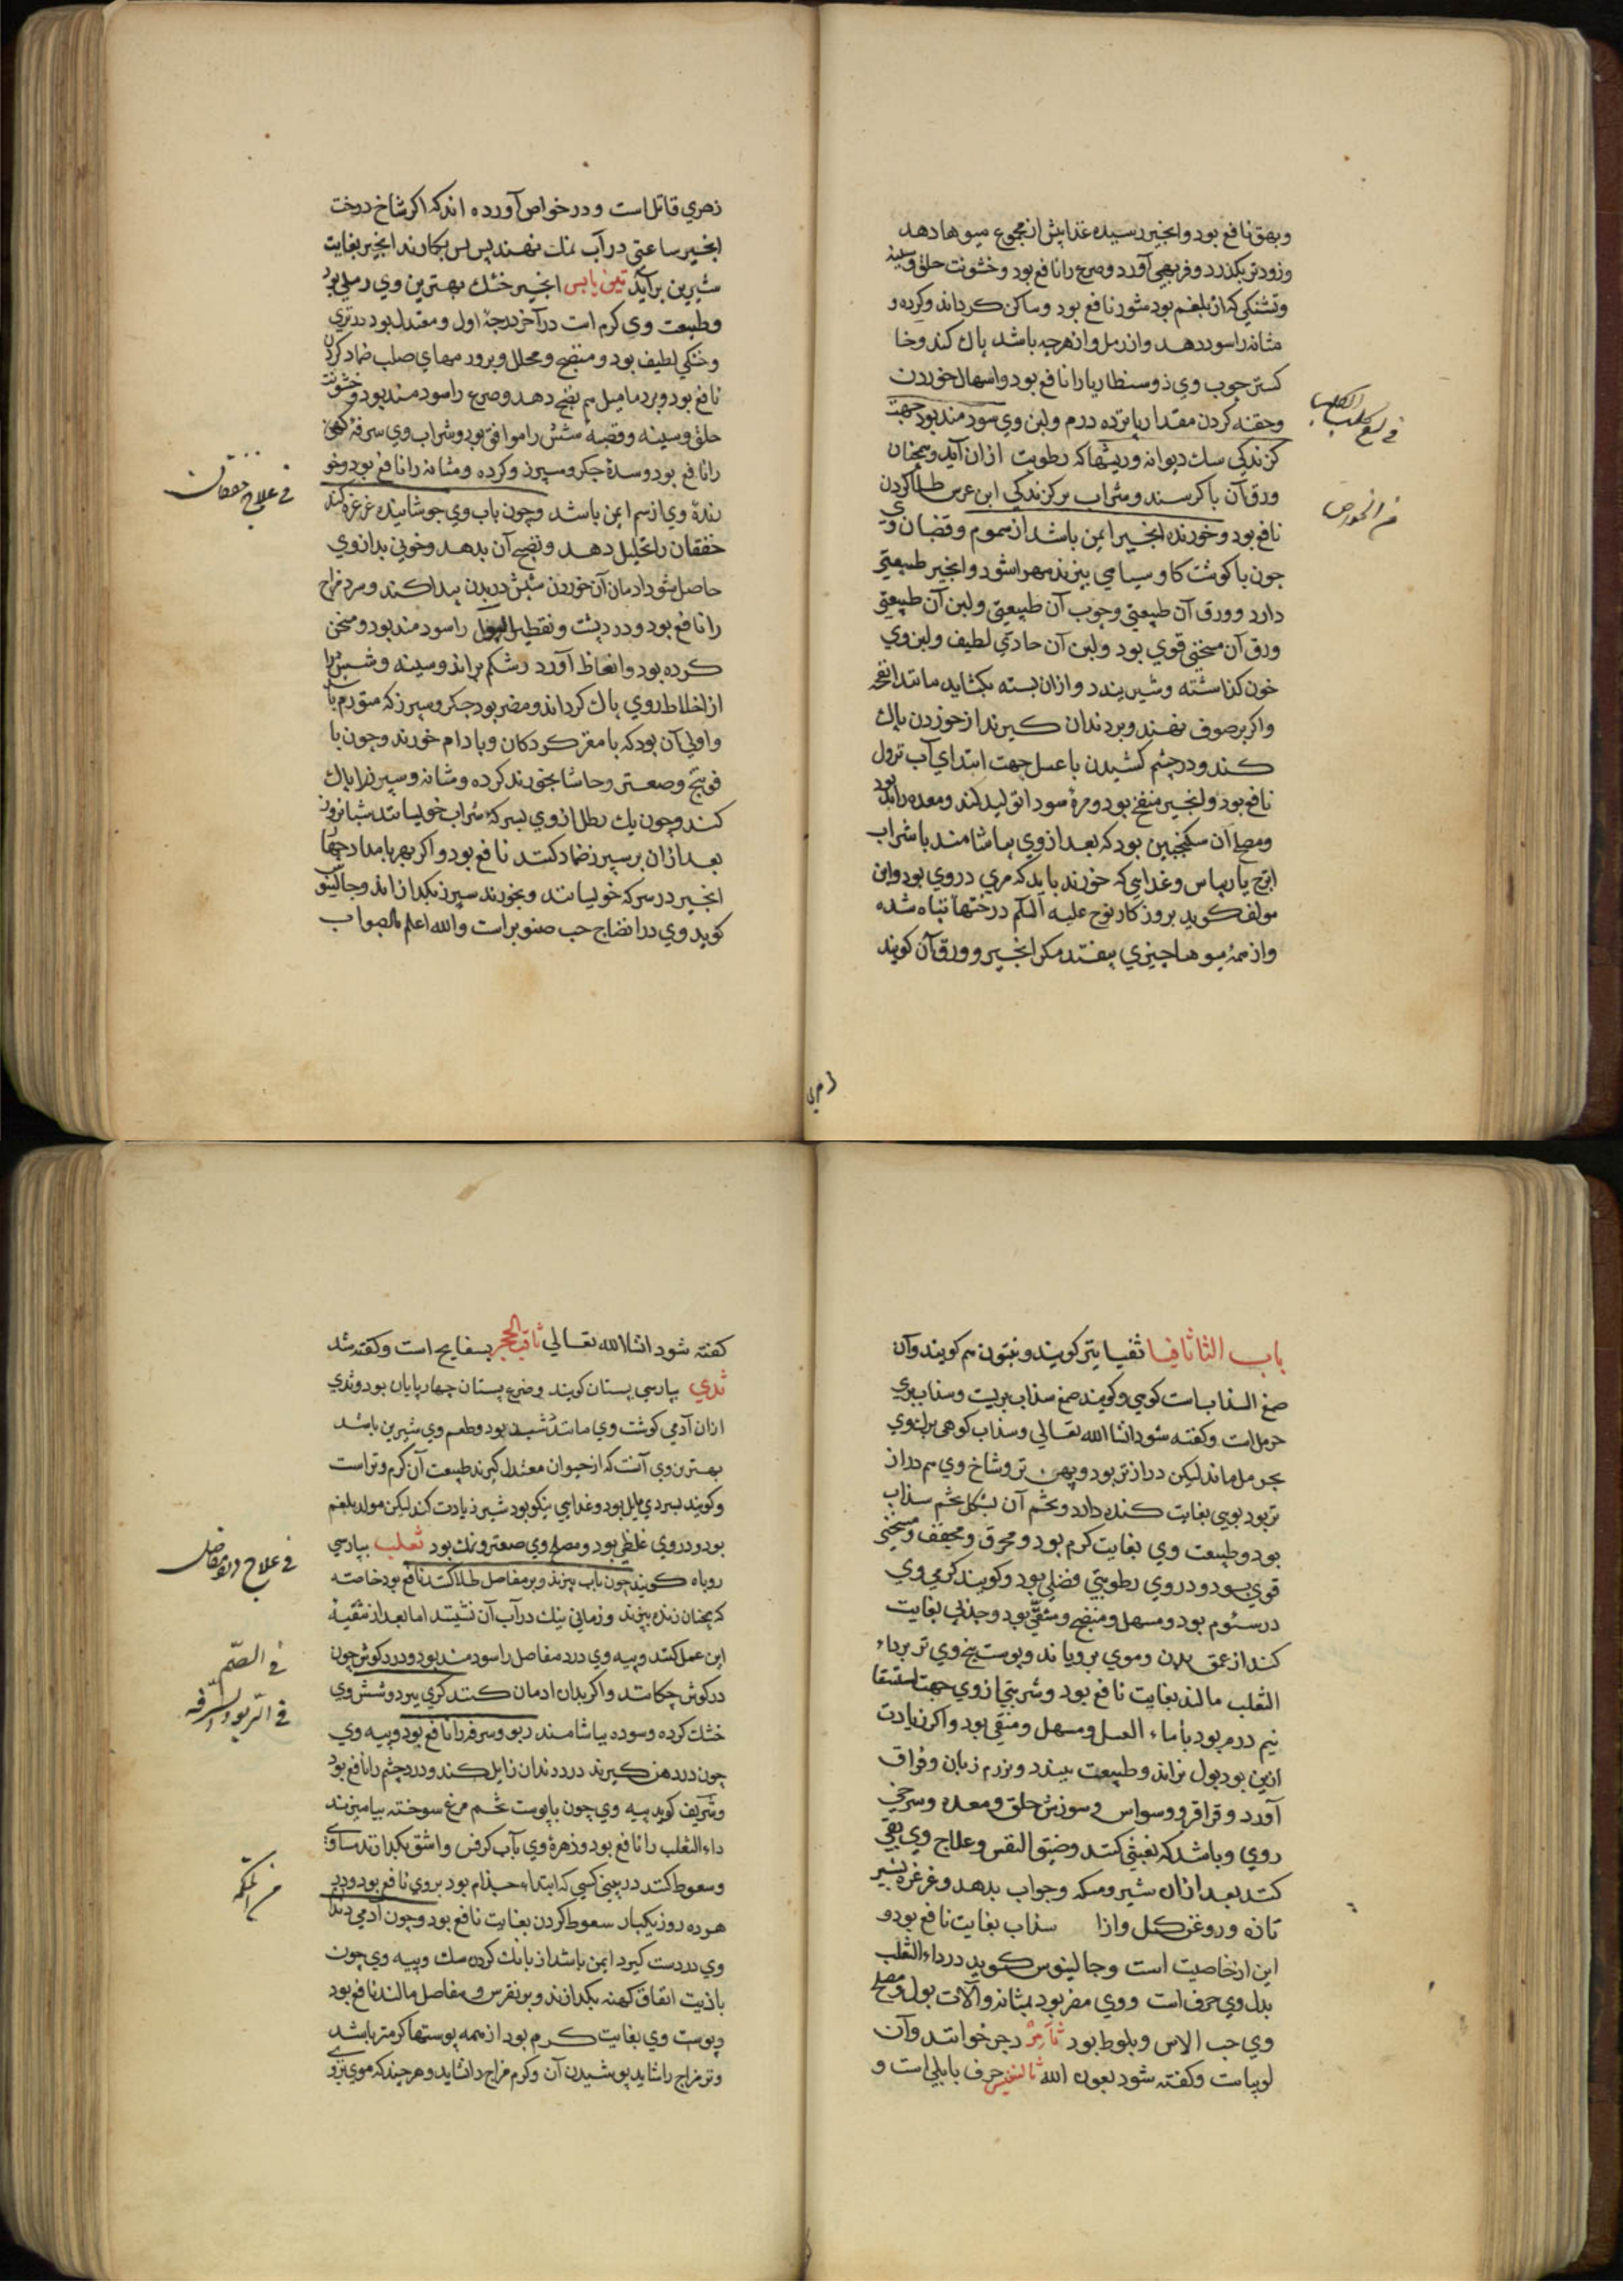 وبهق نافع بود وانجیر رسیده غذا بیش از مجموع میوها دهد
وزودتر بکذرد وفربهی آورد وصرع را نافع بود وخشونت حلق وسینه
وتشنکی که از بلغم بود شور نافع بود وساکن کرداند وکرده و
مثانه را سود دهد واز رمل وازهرچه باشد پاک کند وخا
کستر چوب وی ذوسنطاریا را نافع بود واسهال خوردن
وحقنه کردن مقدار پانزده درم ولبن وی سودمند بود جهت
کزندکی سک دیوانه وریشها که رطوبت ازان آید وهمچنان
ورق آن باکرسنه وشراب برکزندکی ابن عرس طلا کردن
نافع بود وخورنده انجیر ایمن باشد از سموم وقضبان وی
چون با کوشت کاو سیامی بپزند مهرا شود وانجیر طبیعتی
دارد وورق آن طبیعتی وچوب آن طبیعتی ولبن آن طبیعتی
ورق آن مسخنی قوی بود ولبن آن حادتی لطیف ولبن وی
خون کذاشته وشیر بندد وازان بسته بکشاید مانند انفحه
واکر برصوف نهند وبردندان کیرند از خوردن پاک
کند ودرچشم کشیدن با عسل جهت ابتدای آب نزول
نافع بود وانجیر منفخ بود ومره سودا تولید کند ومعده را بد بود
ومصلح آن سکنجبین بود که بعد از وی بیاشامند با شراب
اترج یا ریباس وغذایی که خورند باید که مری دروی بود واین
مولف کوید بروزکار نوح علیه السلم درختها تباه شده
واز همه میوها چیزی بیفتد مکر انجیر وورق آن کویند
فی لسع کلب الکلب
زهری
زهری قاتل است ودر خواص آورده اند که اکر شاخ درخت
انجیر ساعتی درآب نمک نهند پس بکارند انجیر بغایت
شیرین برآید تین یابس انجیر خشک بهترین وی رملی بود
وطبیعت وی کرم است درآخر درجه اول ومعتدل بود در تری
وخشکی لطیف بود ومنضج ومحلل وبرورمهای صلب ضماد کردن
نافع بود وبردمامیل هم نضج دهد وصرع را سودمند بود وخشونت
حلق وسینه وقصبه شش را موافق بود وشراب وی سرفه کهن
را نافع بود وسده جکر وسپرز وکرده ومثانه را نافع بود وخو
رنده وی از سم ایمن باشد وچون باب وی جوشانیده غرغره کنند
خفقان را تحلیل دهد ونضج آن بدهد وخونی بد از وی
حاصل شود ادمان آن خوردن شپش در بدن پیدا کند وسرد مزاج
را نافع بود ودرد پشت وتقطیر البول را سودمند بود ومسخن
کرده بود وانعاظ آورد وشکم براند وسینه وشش را
از اخلاط روی پاک کرداند ومضر بود جکر وسپرز که متورم باشد
واولی آن بود که با مغز کردکان وبادام خورند وچون با
فوتنج وصعتر وحاشا بخورند کرده ومثانه وسپرز را پاک
کند وچون یک رطل از وی بسرکه شراب خویسانند شبانروز
بعد ازان برسپرز ضماد کنند نافع بود واکر هر بامداد چهار
انجیر درسرکه خویسانند وبخورند سپرز بکدازاند وجالینو
کوید وی در انضاج حب صنوبر است والله اعلم بالصواب
فی علاج خفقان
باب الثا ثافیا ثفیا نیز کویند وینتون هم کویند وآن
صمغ السذابست کوهی وکویند صمغ سذاب بریست وسذاب بری
حرمل است وکفته شود انشا الله تعالی وسذاب کوهی برک وی
بحرمل ماند لیکن درازتر بود وپهن تر وشاخ وی هم دراز
تر بود بویی بغایت کنده دارد وتخم آن بشکل تخم سذاب
بود وطبیعت وی بغایت کرم بود ومحرق ومجفف ومسخنی
قوی بود ودروی رطوبتی فضلی بود وکویند کرمی وی
درسئوم بود ومسهل ومنضج ومنقی بود وجذبی بغایت
کند از عمق بدن وموی برویاند وپوست بیخ وی تر برداء
الثعلب مالند بغایت نافع بود وشربتی از وی جهت استسقا
نیم درم بود بآماء العسل ومسهل ومنقی بود واکر زیادت
ازین بود بول براند وطبیعت ببندد وبزرم زبان وفواق
آورد وقراقر ووسواس وسوزش حلق ومعده وسرخی
روی وباشد که بغشی کند وضیق النفس وعلاج وی بقی
کند بعد ازان شیر ومسکه وجواب بدهد وغرغره بشیر
تازه وروغن کل وازا سذاب بغایت نافع بود و
این از خاصیت است وجالینوس کوید درداء الثعلب
بدل وی حرف است ووی مضر بود بمثانه وآلات بول ومصلح
وی حب الاس وبلوط بود ثامر رجر خوانند وآن
لوبیاست وکفته شود بعون الله ثالفیس حرف بابلی است و
کفته شود انشاالله تعالی ثاقب الحجر بسفایج است وکفته شد
ثدی بپارسی پستان کویند وضرع پستان چهارپایان بود وثدی
ازان آدمی کوشت وی مانند شبد بود وطعم وی شیرین باشد
بهترین وی آنست که از حیوان معتدل کیرند طبیعت آن کرم وتر است
وکویند بسردی مایل بود وغذایی نیکو بود شیر زیادت کند لیکن مولد بلغم
بود ودروی غلظی بود ومصلح وی صعتر ونمک بود ثعلب بپارسی
روباه کویند چون باب بپزند وبرمفاصل طلا کنند نافع بود خاصه
که همچنان زنده بپزند وزمانی نیک درآب آن نشینند اما بعد از تنقیه
این عمل کنند وپیه وی درد مفاصل را سودمند بود ودرد کوش چون
در کوش چکانند واکر بدان ادمان کنند کری ببرد وشش وی
خشک کرده وسوده بیاشامند ربو وسرفه را نافع بود وپیه وی
چون در دهن کیرند درد دندان زایل کند ودرد چشم را نافع بود
وشریف کوید پیه وی چون با پوست تخم مرغ سوخته بیامیزند
داء الثعلب را نافع بود وزهره وی بآب کرفس واشق بکدازند مساوی
وسعوط کنند در بینی کسی که ابتداء جذام بود بروی نافع بود ودر
هر ده روز یکبار سعوط کردن بغایت نافع بود وچون آدمی دندان
وی در دست کیرد ایمن باشد از بانک کردن سک وپیه وی چون
بازیت انفاق کهنه بکدازند وبرنقرس ومفاصل مالند نافع بود
وپوست وی بغایت کرم بود از همه پوستها کرمتر باشد
وتر مزاج را شاید پوشیدن آن وکرم مزاج را نشاید وهرچند که موی بزو
فی علاج المفاصل
فی الصمم
فی الربو والسرفه